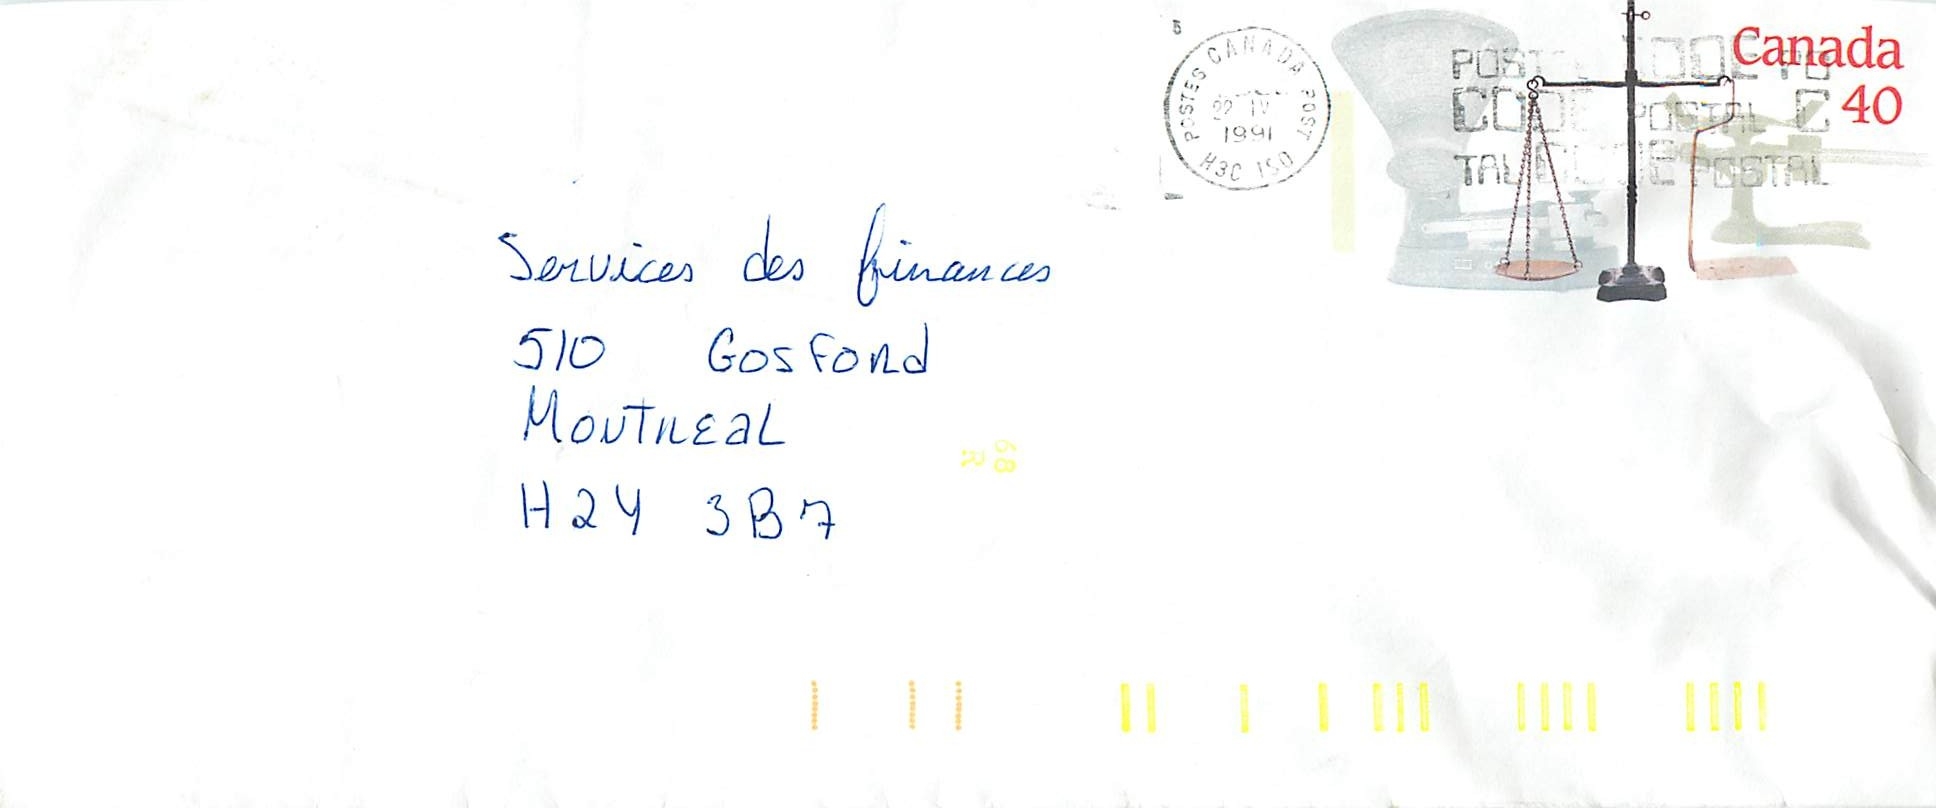 5
POSTES CANADA POST
22 IV
1991
H3C 1S0
Canada
40
CODE POSTAL C
CODE POSTAL
Services des finances
510 Gosford
Montreal
H2Y 3B7
68
R